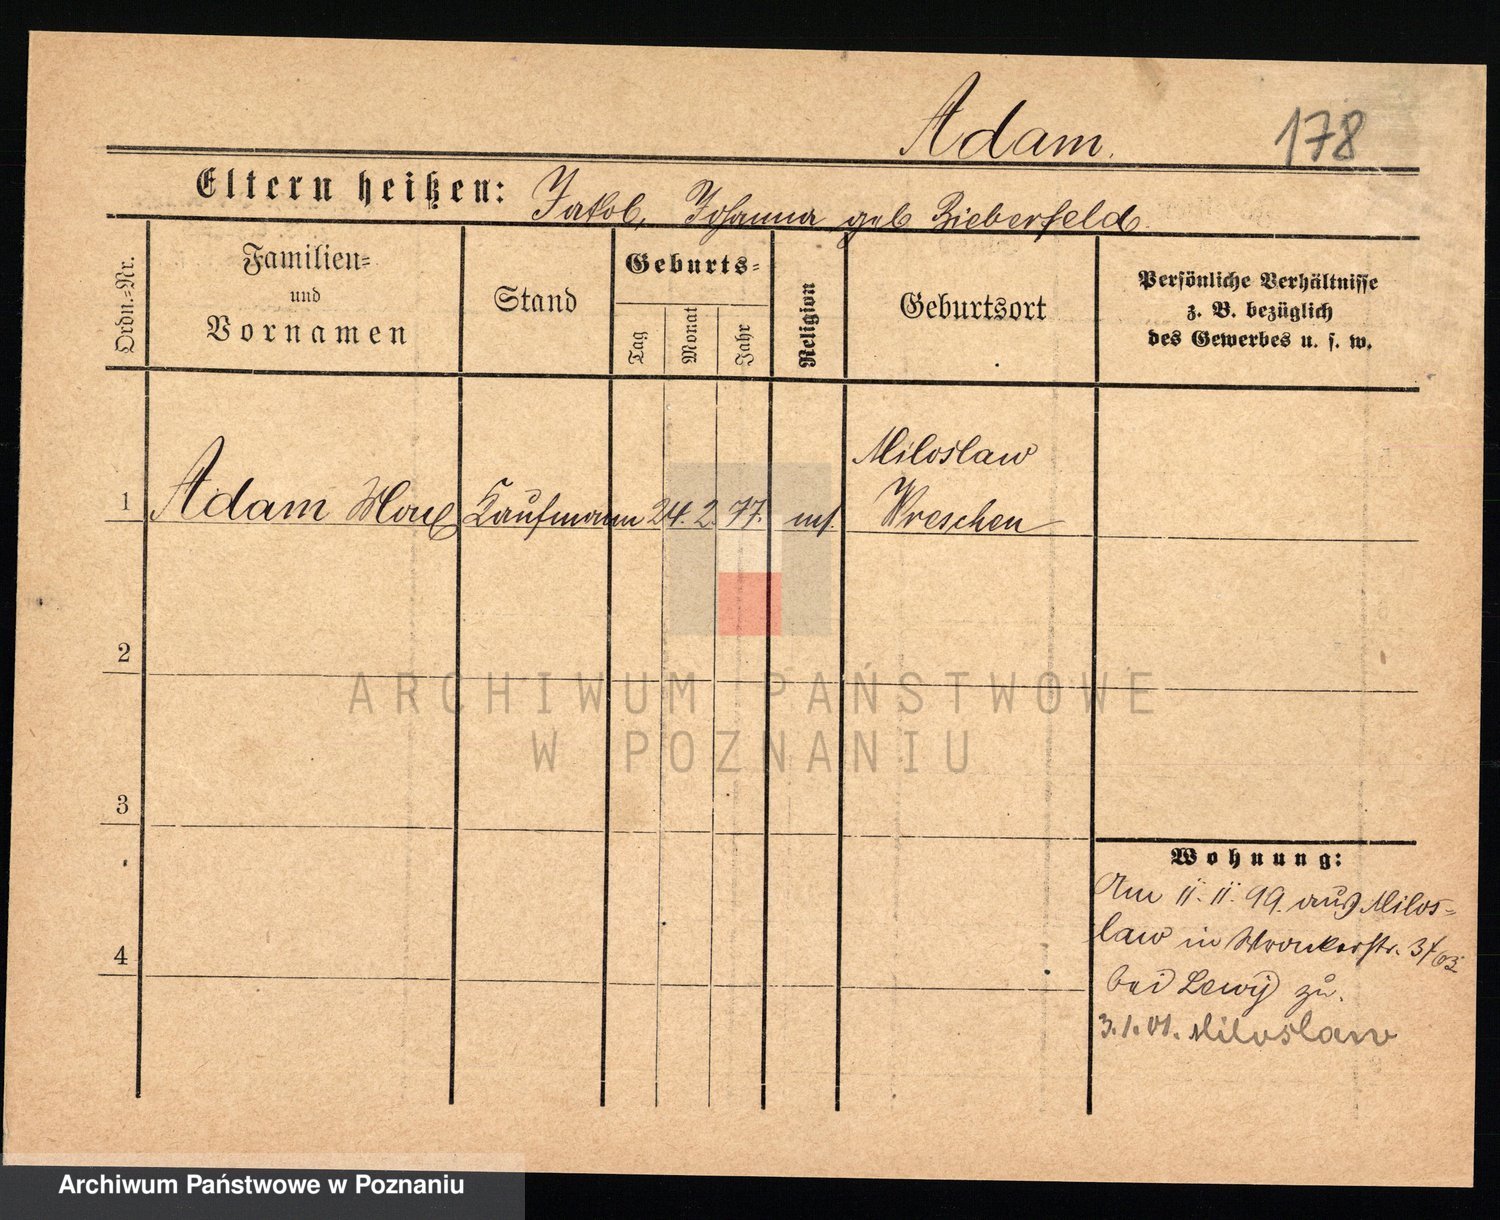 Adam.
178
Eltern heißen: Jakob, Johanna geb Bieberfeld.
Ordn.-Nr.
Familien- und Vornamen
Stand
Geburts-
Tag
Monat
Jahr
Religion
Geburtsort
Persönliche Verhältnisse
z. B. bezüglich
des Gewerbes u. s. w.
Miloslaw
1 Adam Max Kaufmann 24. 2. 77. Wreschen
2
ARCHIWUM PAŃSTWOWE
W POZNANIU
3
4
Wohnung:
Am 11. 11. 99. aus Milos-
law in Wronkerstr.
bei Lewy zu.
3.1.01. Miloslaw
Archiwum Państwowe w Poznaniu